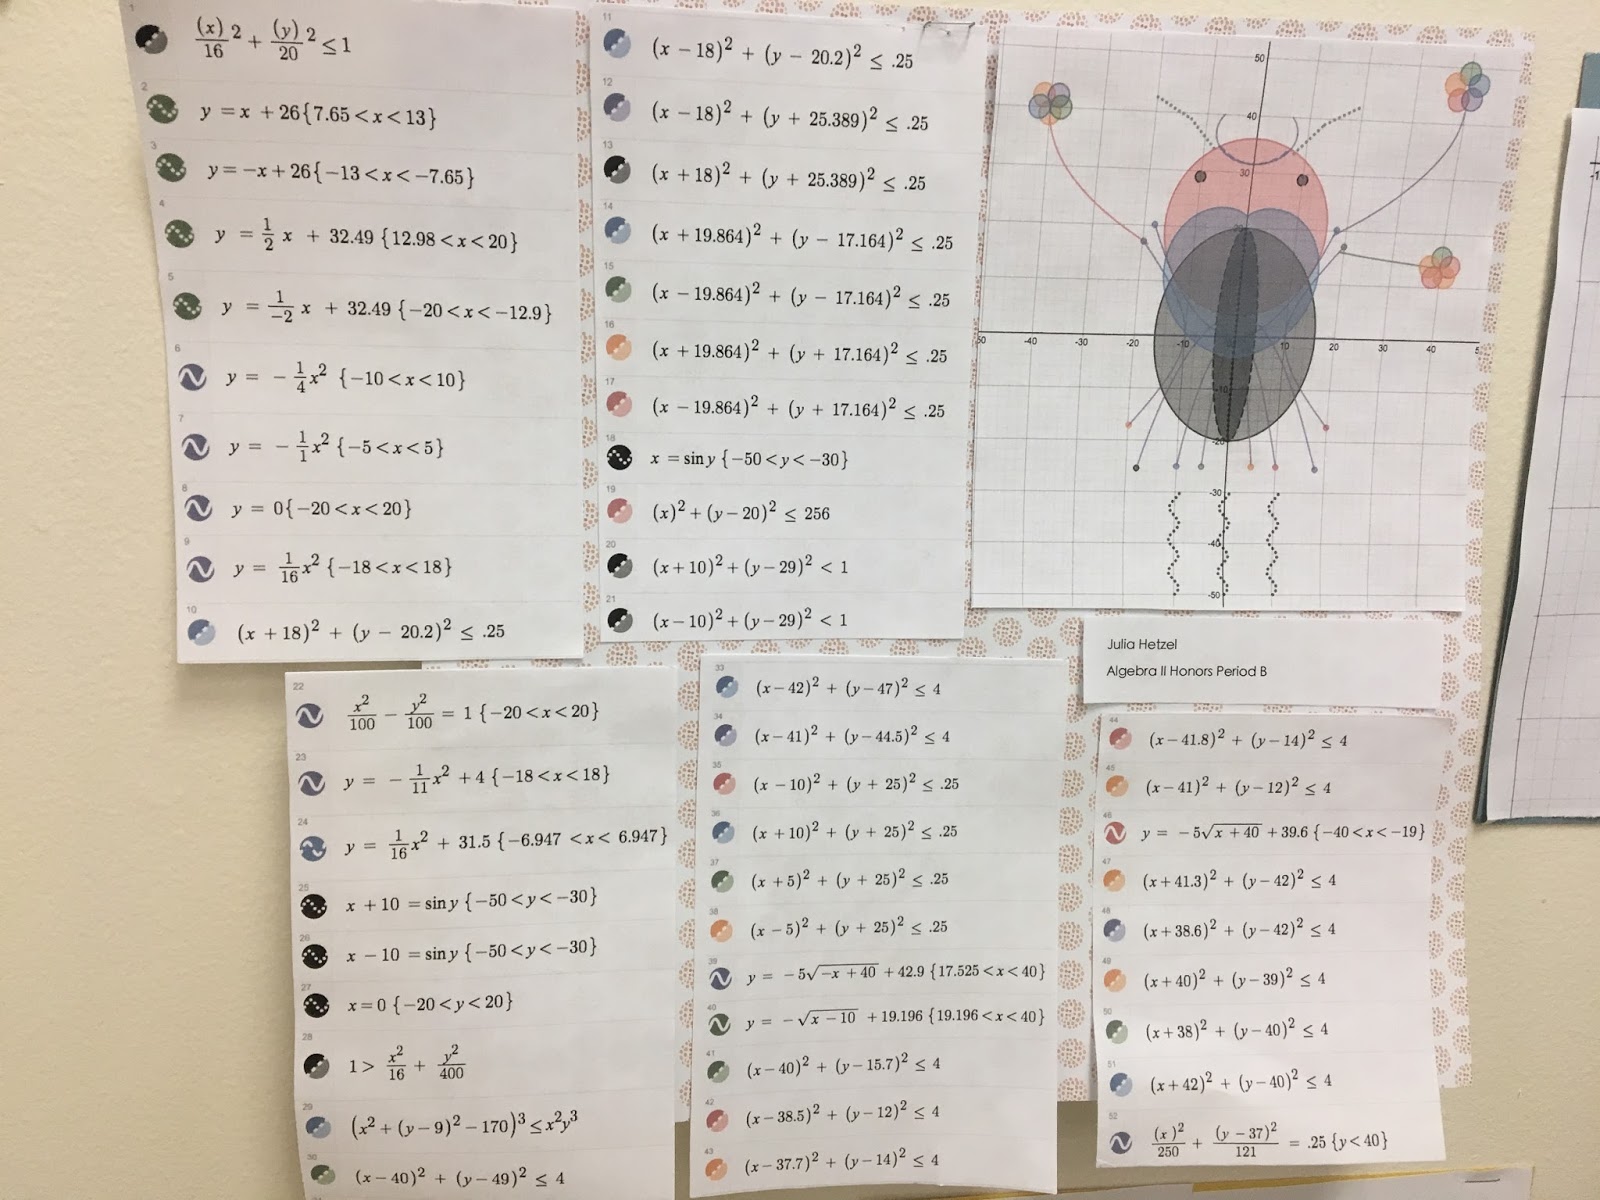 1
(x)/16 2 + (y)/20 2 ≤ 1
2
y = x + 26 {7.65 < x < 13}
3
y = −x + 26 {−13 < x < −7.65}
4
y = 1/2 x + 32.49 {12.98 < x < 20}
5
y = 1/−2 x + 32.49 {−20 < x < −12.9}
6
y = − 1/4 x² {−10 < x < 10}
7
y = − 1/1 x² {−5 < x < 5}
8
y = 0 {−20 < x < 20}
9
y = 1/16 x² {−18 < x < 18}
10
(x + 18)² + (y − 20.2)² ≤ .25
11
(x − 18)² + (y − 20.2)² ≤ .25
12
(x − 18)² + (y + 25.389)² ≤ .25
13
(x + 18)² + (y + 25.389)² ≤ .25
14
(x + 19.864)² + (y − 17.164)² ≤ .25
15
(x − 19.864)² + (y − 17.164)² ≤ .25
16
(x + 19.864)² + (y + 17.164)² ≤ .25
17
(x − 19.864)² + (y + 17.164)² ≤ .25
18
x = sin y {−50 < y < −30}
19
(x)² + (y − 20)² ≤ 256
20
(x + 10)² + (y − 29)² < 1
21
(x − 10)² + (y − 29)² < 1
50
40
30
20
-20 -10 10 20 30 40
-10
-20
-30
-40
-50
Julia Hetzel
Algebra II Honors Period B
22
x²/100 − y²/100 = 1 {−20 < x < 20}
23
y = − 1/11 x² + 4 {−18 < x < 18}
24
y = 1/16 x² + 31.5 {−6.947 < x < 6.947}
25
x + 10 = sin y {−50 < y < −30}
26
x − 10 = sin y {−50 < y < −30}
27
x = 0 {−20 < y < 20}
28
1 > x²/16 + y²/400
29
(x² + (y − 9)² − 170)³ ≤ x²y³
30
(x − 40)² + (y − 49)² ≤ 4
33
(x − 42)² + (y − 47)² ≤ 4
34
(x − 41)² + (y − 44.5)² ≤ 4
35
(x − 10)² + (y + 25)² ≤ .25
36
(x + 10)² + (y + 25)² ≤ .25
37
(x + 5)² + (y + 25)² ≤ .25
38
(x − 5)² + (y + 25)² ≤ .25
39
y = −5√(−x + 40) + 42.9 {17.525 < x < 40}
40
y = −√(x − 10) + 19.196 {19.196 < x < 40}
41
(x − 40)² + (y − 15.7)² ≤ 4
42
(x − 38.5)² + (y − 12)² ≤ 4
43
(x − 37.7)² + (y − 14)² ≤ 4
44
(x − 41.8)² + (y − 14)² ≤ 4
45
(x − 41)² + (y − 12)² ≤ 4
46
y = −5√(x + 40) + 39.6 {−40 < x < −19}
47
(x + 41.3)² + (y − 42)² ≤ 4
48
(x + 38.6)² + (y − 42)² ≤ 4
49
(x + 40)² + (y − 39)² ≤ 4
50
(x + 38)² + (y − 40)² ≤ 4
51
(x + 42)² + (y − 40)² ≤ 4
52
(x)²/250 + (y − 37)²/121 = .25 {y < 40}